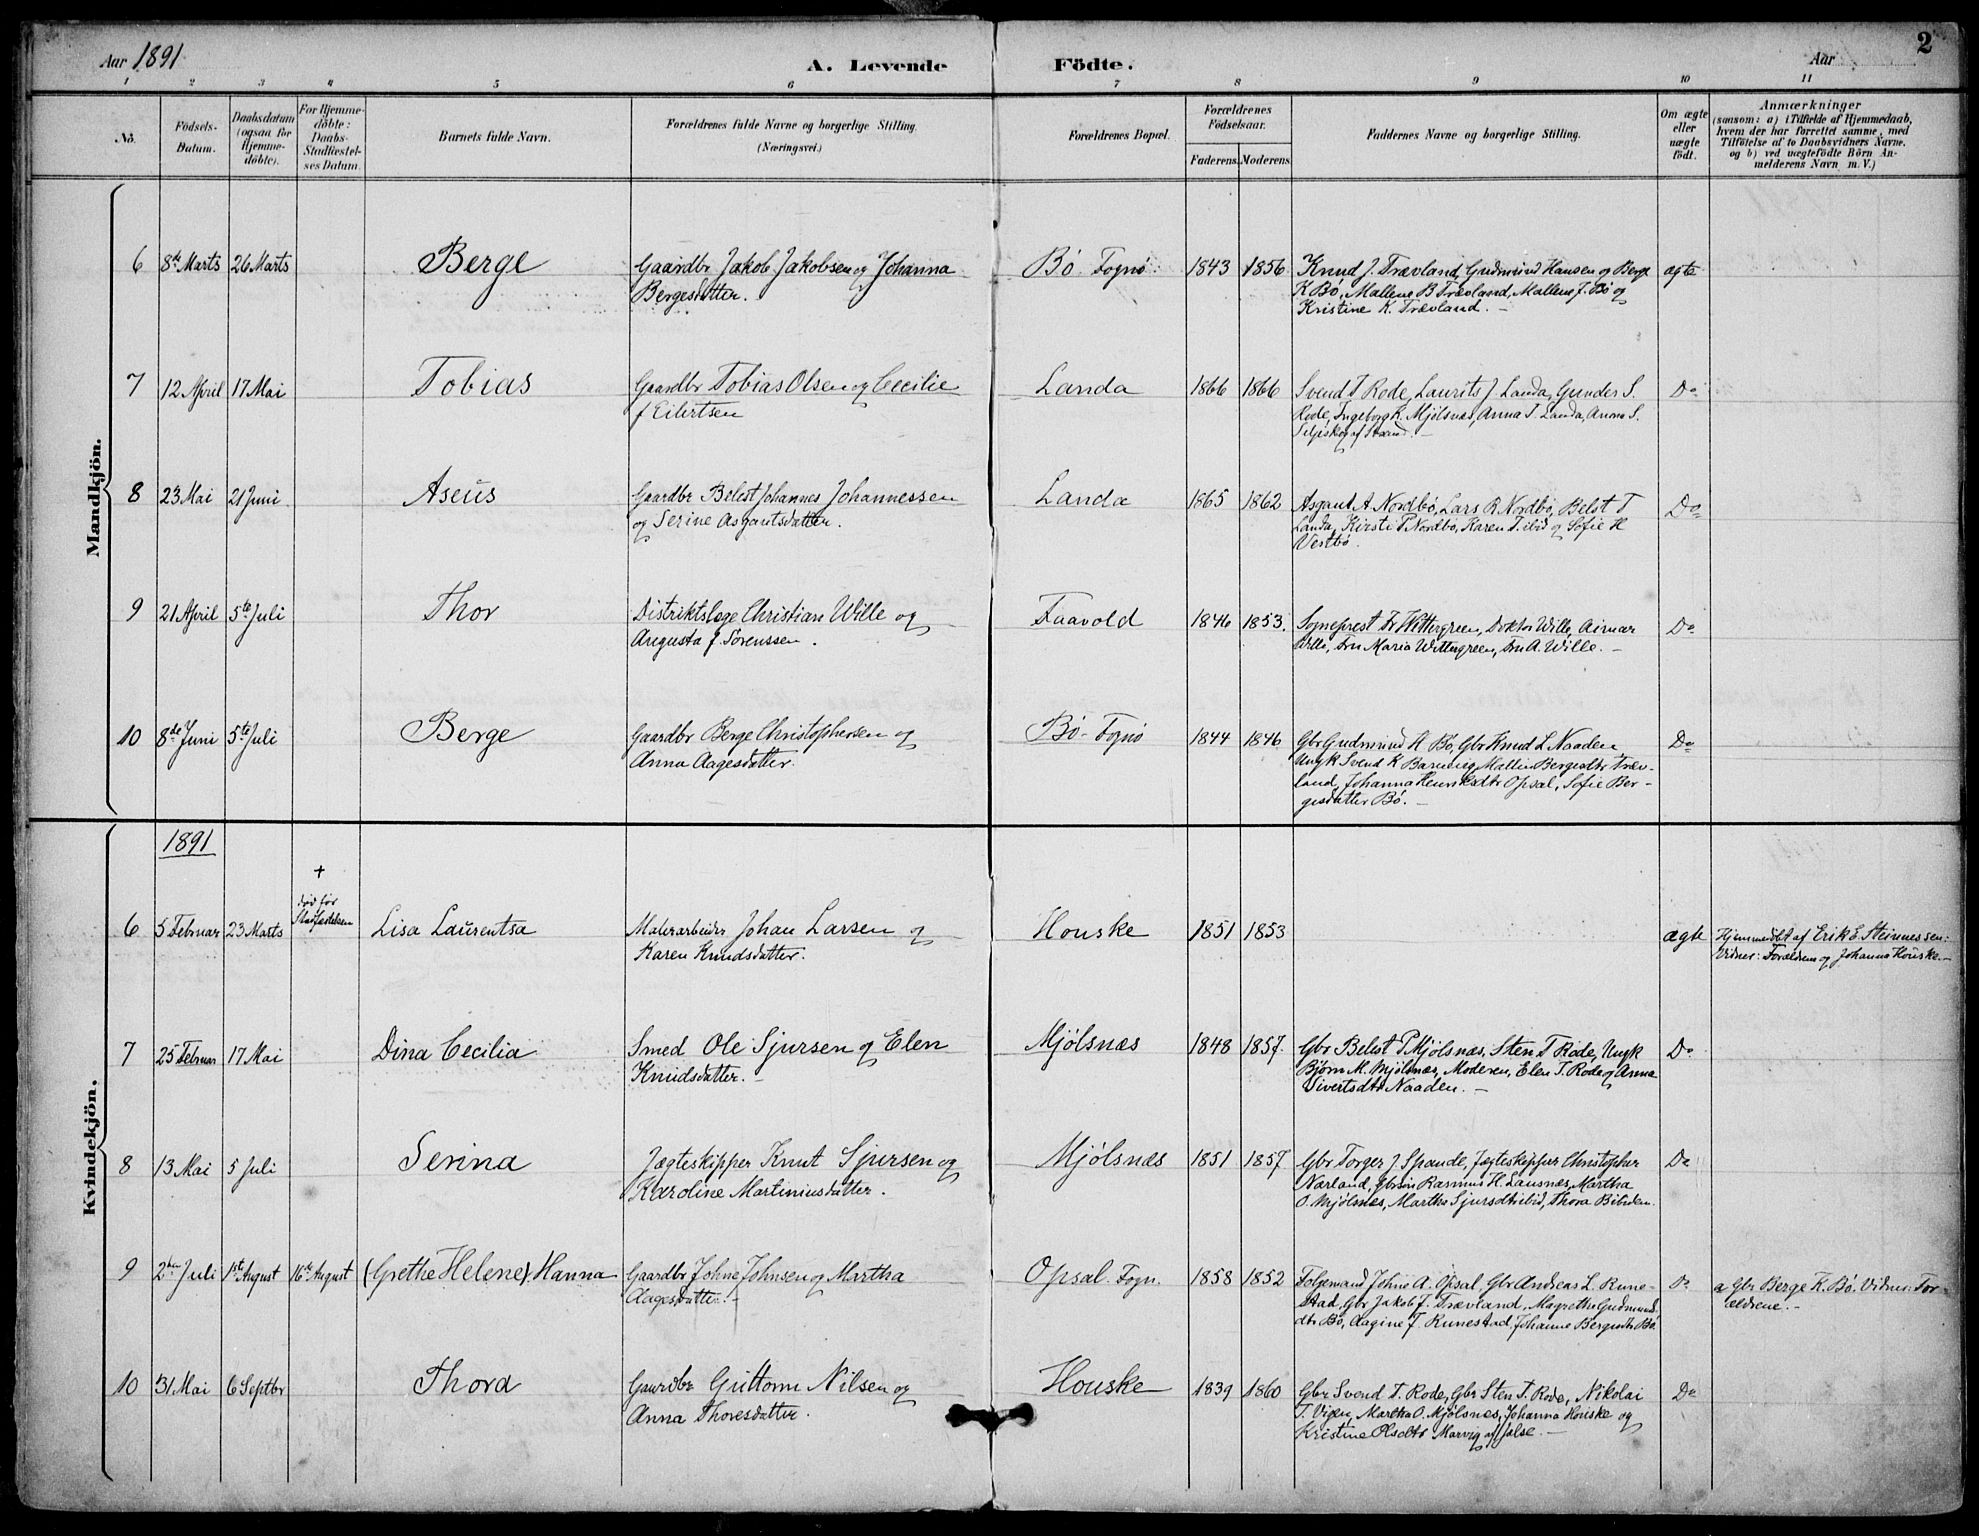 Aar 1891
A. Levende Födte.
Aar
2
1 2 3 4 5 6 7 8 9 10 11
No.
Födsels-Datum.
Daabsdatum (ogsaa for Hjemme-döbte).
For Hjemme-döbte: Daabs-Stadfæstel-ses Datum.
Barnets fulde Navn.
Forældrenes fulde Navne og borgerlige Stilling.
(Næringsvei.)
Forældrenes Bopæl.
Forældrenes Födselsaar.
Faderens. Moderens.
Faddernes Navne og borgerlige Stilling.
Om ægte eller uægte födt.
Anmærkninger
(saasom: a) i Tilfælde af Hjemmedaab,
hvem der har forrettet samme, med
Tilföielse af to Daabsvidners Navne.
og b) ved uægtefödte Börn An-
melderens Navn m. V.)
Mandkjön.
6 8de Marts 26 Marts Berge Gaardbr Jakob Jakobsen og Johanna Bø Fognø 1843 1856 Knud J. Trævland, Gudmund Hansen og Berge ægte
Bergesdatter. K Bø, Mallene B Trævland, Mallene J. Bø og
Kristine K. Trævland. —
7 12 April 17 Mai Tobias Gaardbr Tobias Olsen og Cecilie Landa 1866 1866 Svend T Rode, Laurits J Landa, Gunder S. Do
f Eilertsen Rode, Ingeborg K. Mjølsnæs, Anna T. Landa, Anna S.
af Strand. —
8 23 Mai 21 Juni Aseus Gaardbr Belest Johannes Johannessen Landa 1865 1862 Asgaut A Nordbø, Lars R Nordbø, Belst T Do
og Serine Asgautsdatter. Landa, Kirsti P Nordbø, Karen T. ibid og Sofie H
Vestbø.
9 21 April 5te Juli Thor Distriktslæge Christian Wille og Faavold 1846 1853. Sogneprest Fr Wittergreen, Doktor Wille, Do
Augusta f Sørenssen. Wille, Fru Maria Wittergreen, Fru A. Wille. —
10 8de Juni 5te Juli Berge Gaardbr Berge Christophersen og Bø Fognø 1844 1846 Gbr Gudmund H Bø, Gbr Knud L Naaden, Do
Anna Aagesdatter. Ungk Svend K Mallin Bergesdtr Træv-
land, Johanna Henriksdtr Opsal, Sofie Ber-
gesdatter Bø. —
Kvindekjön.
1891
+
død før
Stadfæstelsen
6 5 Februar 23 Marts Lisa Laurentsa Johan Larsen og Houske 1851 1853 ægte Hjemmedøbt af Erik E Steinnessen:
Karen Knudsdatter. Vidner: Forældrene og Johanna Houske. —
7 25 Februar 17 Mai Dina Cecilia Smed Ole Sjursen og Elen Mjølsnæs 1848 1857. Gbr Belest P Mjølsnæs, Sten T Rode, Ungk Do
Knudsdatter. — Bjørn M. Mjølsnæs, Moderen, Elen T. Rode og Anna
Sivertsdtr Naaden. —
8 13 Mai 5 Juli Serina Jægteskipper Knut Sjursen og Mjølsnæs 1851 1857 Gbr Torger J Spande, Jægteskipper Christopher Do
Karoline Martiniusdatter. Narland, Gbrsøn Rasmus H. Lausnes, Martha
O. Mjølsnæs, Martha Sjursdtr ibid, Thora
9 2den Juli 1ste August 16de August (Grethe Helene) Hanna Gaardbr Johne Johnsen og Martha Opsal Fogn. 1858 1852 Folgemand Johne A. Opsal, Gbr Andreas L. Rune- Do a Gbr Berge K. Bø. Vidner: For-
Aagesdatter. — stad, Gbr Jakob J. Trævland, Magrethe Gudmunds- ældrene. —
dtr Bø, Aagine T. Runestad, Johanne Bergesdtr Bø.
10 31 Mai 6 Septbr Thora Gaardbr Guttorm Nilsen og Houske 1839 1860 Gbr Svend T. Rode, Gbr Sten T. Rode, Nikolai Do
Anna Thoresdatter. T. Vigen, Martha O. Mjølsnæs, Johanna Houske og
Kristine Olsdtr Marvig af Jelse. —